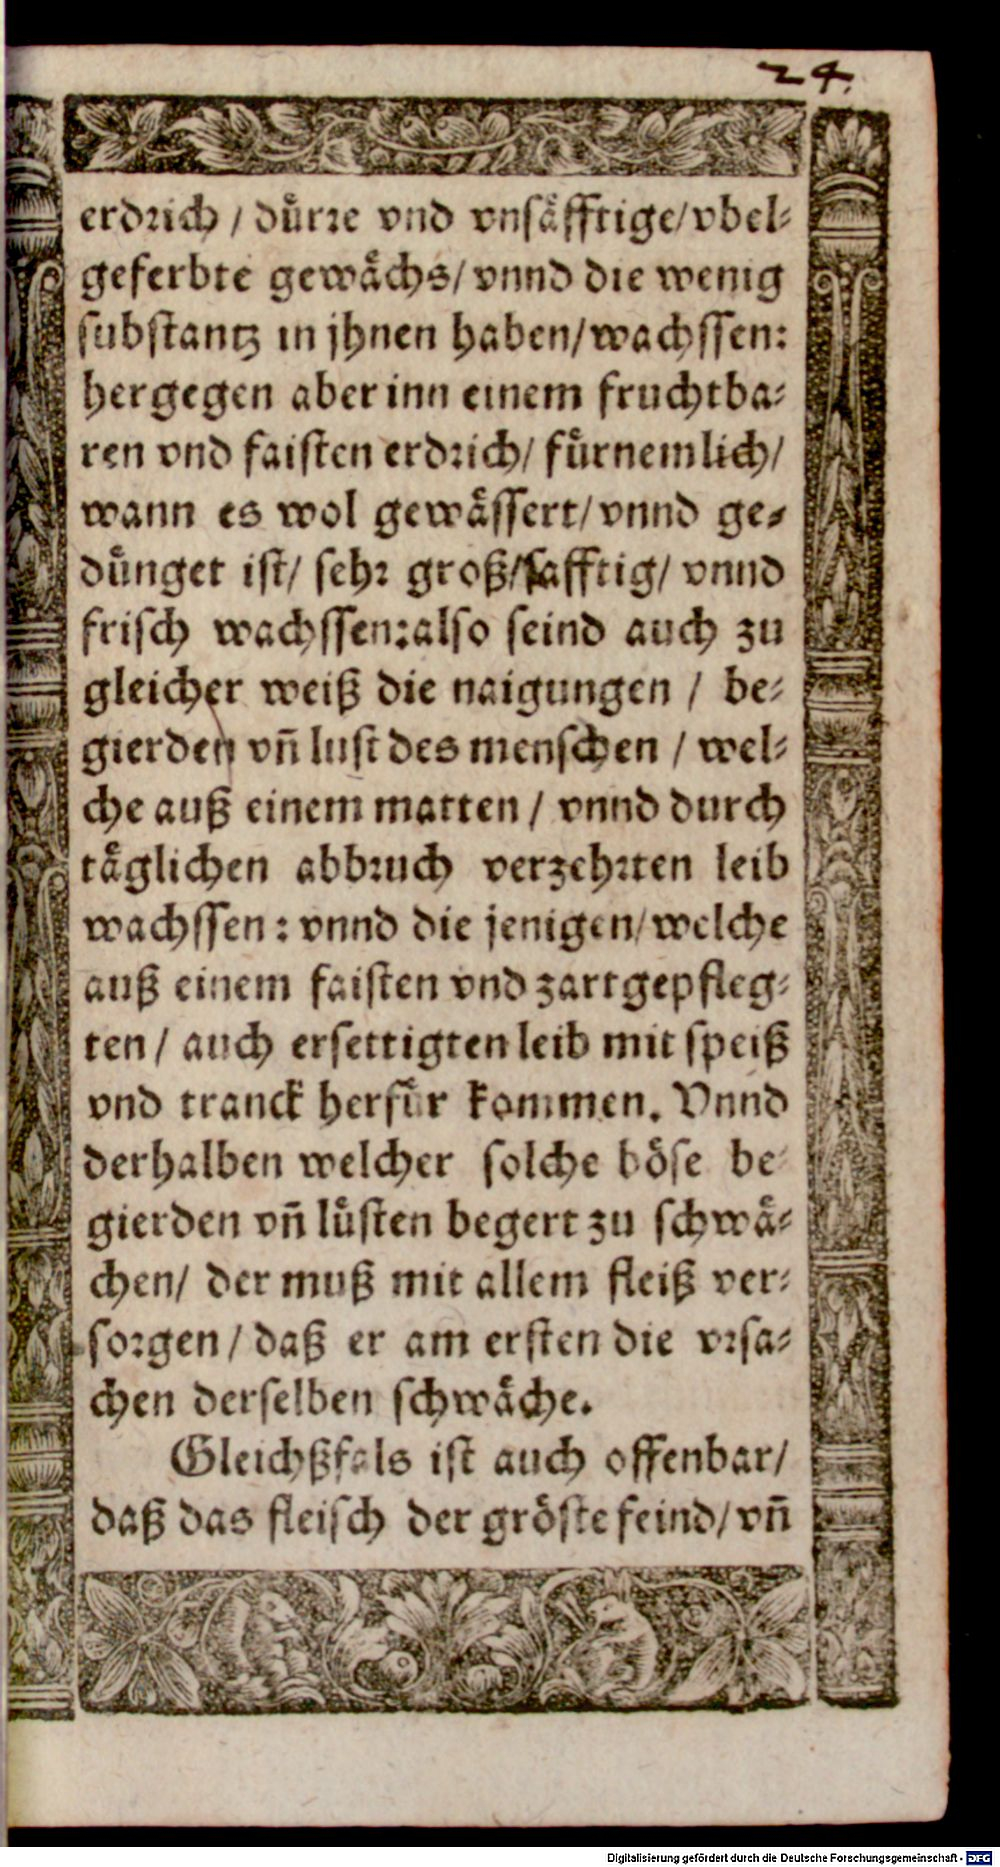 24.
erdrich / dürre vnd vnsäfftige/vbel-
geferbte gewächs/ vnnd die wenig
substantz in jhnen haben/wachssen:
hergegen aber inn einem fruchtba-
ren vnd faisten erdrich/ fürnemlich/
wann es wol gewässert/vnnd ge-
dünget ist/ sehr groß/safftig/ vnnd
frisch wachssen:also seind auch zu
gleicher weiß die naigungen / be-
gierden vñ lust des menschen / wel-
che auß einem matten / vnnd durch
täglichen abbruch verzehrten leib
wachssen: vnnd die jenigen/welche
auß einem faisten vnd zartgepfleg-
ten / auch ersettigten leib mit speiß
vnd tranck herfür kommen. Vnnd
derhalben welcher solche böse be-
gierden vñ lüsten begert zu schwä-
chen/ der muß mit allem fleiß ver-
sorgen / daß er am ersten die vrsa-
chen derselben schwäche.
Gleichßfals ist auch offenbar/
daß das fleisch der gröste feind/vñ
Digitalisierung gefördert durch die Deutsche Forschungsgemeinschaft - DFG